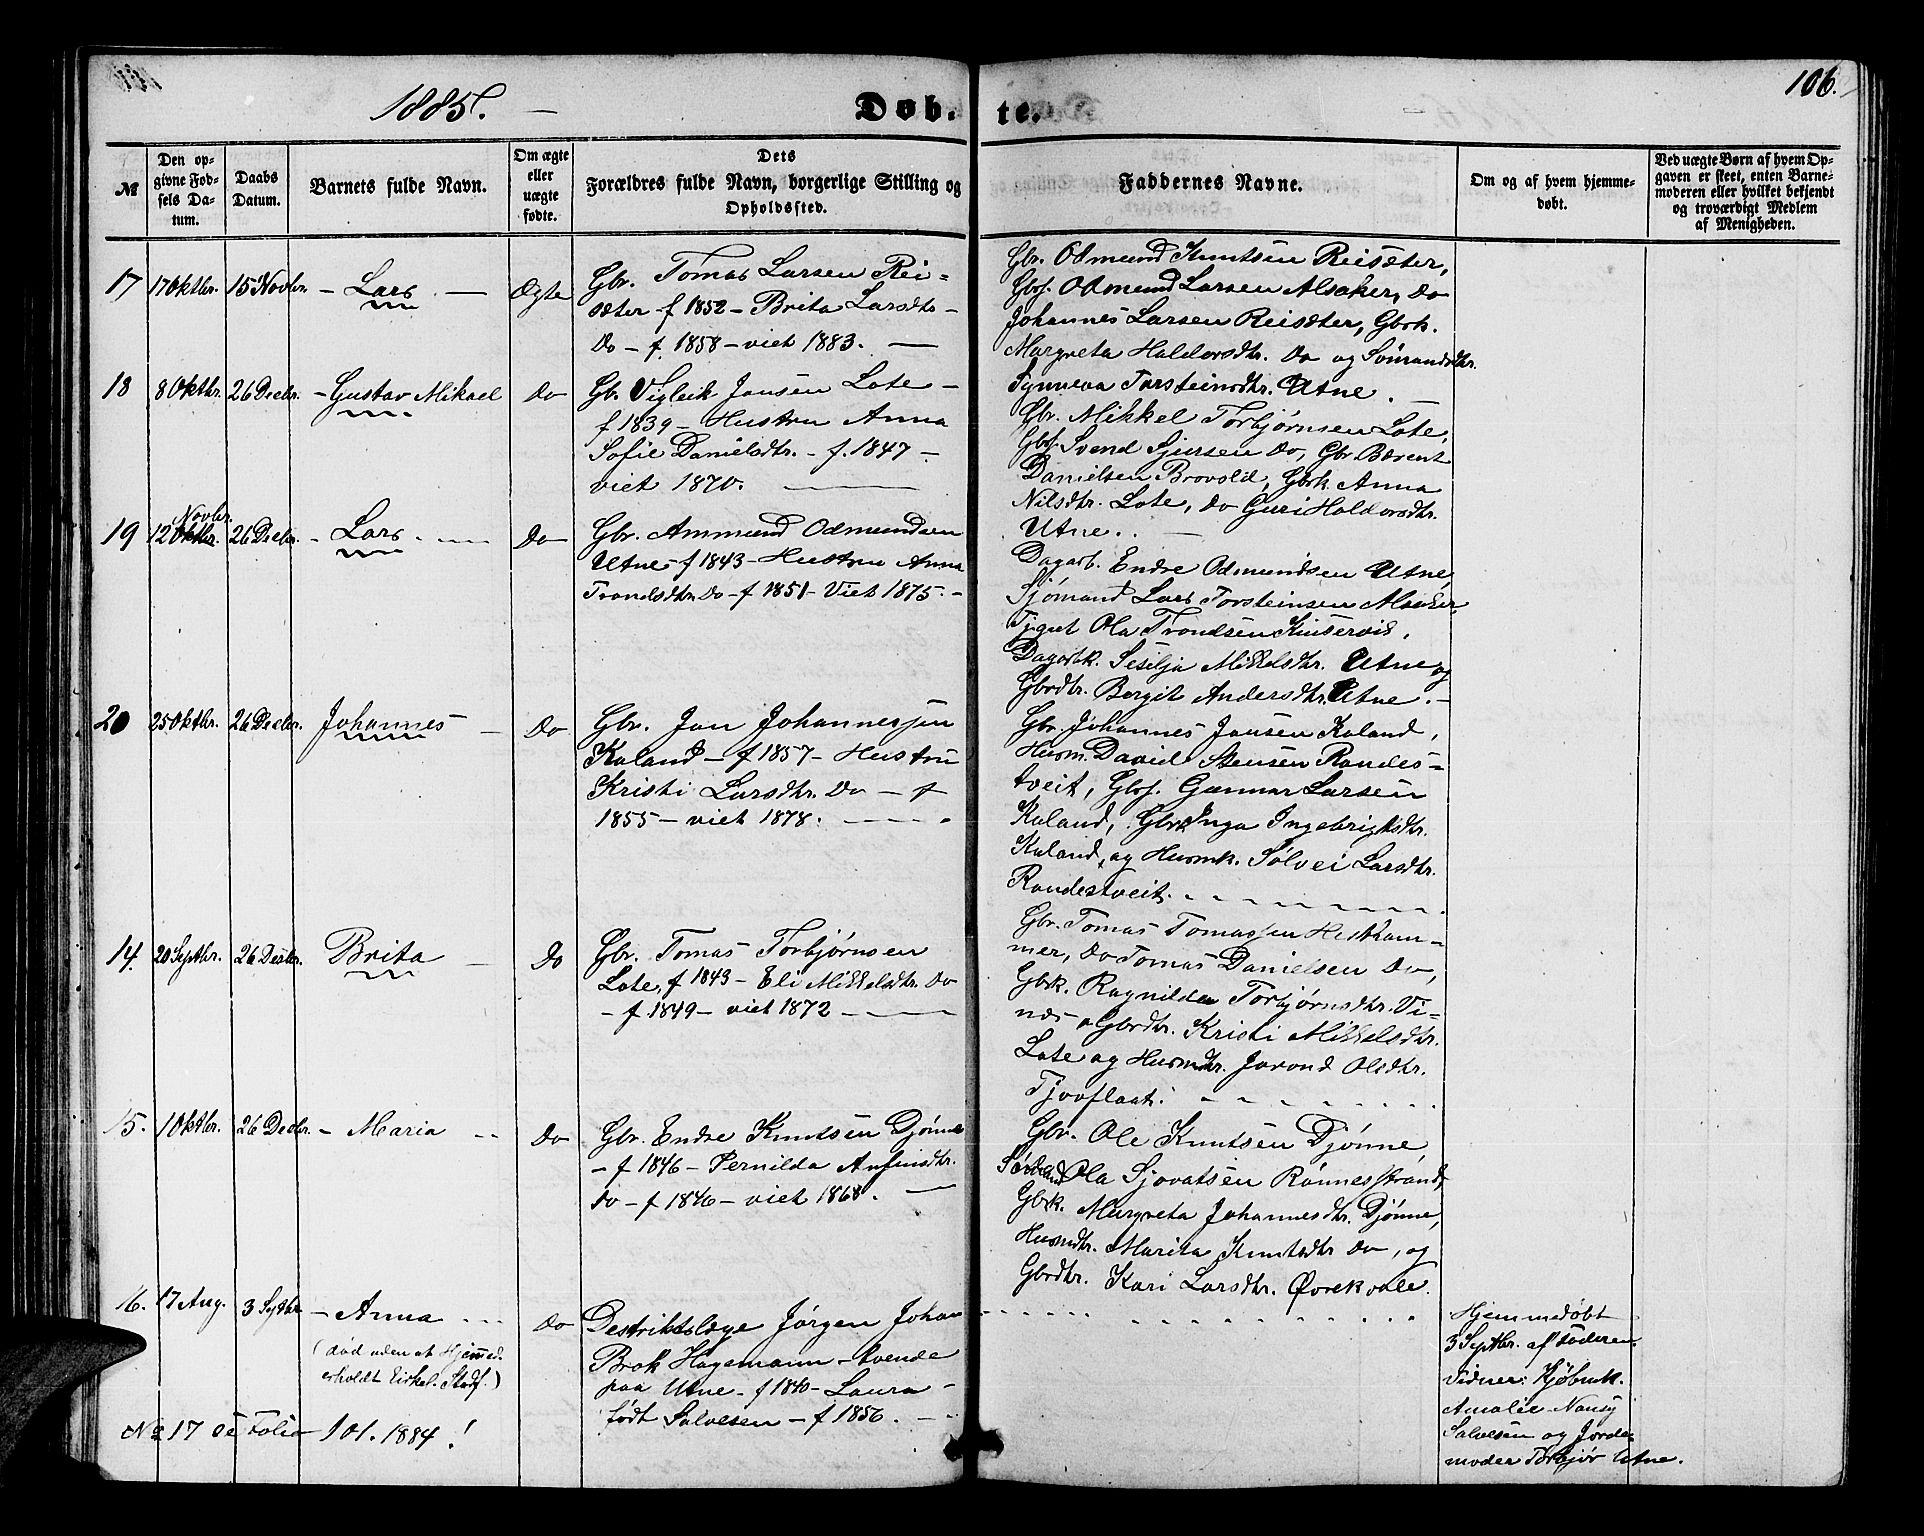 1885. — Døb- te. 106.
№
Den op-
givne Fød-
sels Da-
tum.
Daabs
Datum.
Barnets fulde Navn.
Om ægte
eller
uægte
fødte.
Dets
Forældres fulde Navn, borgerlige Stilling og
Opholdsfted.
Faddernes Navne.
Om og af hvem hjemme-
døbt.
Ved uægte Børn af hvem Op-
gaven er skeet, enten Barne-
moderen eller hvilket bekjendt
og troværdigt Medlem
af Menigheden.
17 17 Oktbr. 15 Novbr. – Lars – Ægte
Gbr. Tomas Larsen Rei-
sæter f 1852 – Brita Larsdtr –
Do – f. 1858 – viet 1883. —
Gbr. Odmund Knutsen Reisæter,
Gbrs. Odmund Larsen Alsaker, Do
Johannes Larsen Reisæter, Gbrk.
Margreta Haldorsdtr. Do og Sømandsdtr.
Synneva Torsteinsdtr. Utne. –
18 8 Oktbr. 26 Decbr. – Gustav Mikael Do
Gb. Vigleik Jansen Lote –
f 1839 – Hustru Anna
Sofie Danielsdtr. – f. 1847 –
viet 1870. —
Gbr. Mikkel Torbjørnsen Lote,
Gbs. Svend Sjursen Do, Gbr. Bærent
Danielsen Brovold, Gbrk Anna
Nilsdtr. Lote, Do Guri Haldorsdtr.
Utne. . —
19 12 Oktbr. Novbr. 26 Decbr. – Lars . — Do
Gbr. Ammund Odmundsen
Utne f 1843 – Hustru Anna
Trondsdtr. Do – f 1851 – Viet 1875. –
Dagarb. Endre Odmundsen Utne,
Sjømand Lars Torsteinsen Alsaker
Tjgut Ola Trondsen Kinservik,
Dagarbk. Sesilja Mikkelsdtr. Utne og
Gbrdtr. Bergit Andersdtr. Utne. –
20 25 Oktbr. 26 Decbr. Johannes – Do
Gbr. Jan Johannessen
Kaland – f 1857 – Hustru
Kristi Larsdtr. Do – f
1855 – viet 1878. —
Gbr. Johannes Jansen Kaland,
Husm. David Stensen Randes-
tveit, Gbs. Gunnar Larsen
Kaland, Gbrk Inga Ingebrigtsdtr.
Kaland, og Husmk. Sølvei Larsdtr.
Randestveit.
14. 20 Septbr. 26 Decbr. Brita – Do
Gbr. Tomas Torbjørnsen
Lote, f 1843 – Eli Mikkelsdtr. Do
– f 1849 – viet 1872 —
Gbr. Tomas Tomassen Hestham-
mer, Do Tomas Danielsen Do,
Gbrk. Ragnilda Torbjørnsdtr. Vi-
nes Gbrdtr. Kristi Mikkelsdtr.
Lote og Husmdtr. Jorond Olsdtr.
Tjoflaat.
15. 1 Oktbr. 26 Decbr. – Maria – Do
Gbr. Endre Knutsen Djønne
– f 1846 – Pernilda Anfinsdtr.
Do – f 1846 – viet 1868. —
Gbr. Ole Knutsen Djønne
Ola Sjovatsen Rønnesstrand,
Gbrk. Margreta Johannesdtr. Djønne,
Husmdtr. Marita Knutsdtr Do, og
Gbrdtr. Kari Larsdtr. Øvrekvale.
16. 17 Aug. 3 Septbr. – Anna Do
(død uden at Hjemmed.
erholdt Kirkel. Stadf.)
Destriktslæge Jørgen Johan
Brok Hagemann – boende
paa Utne – f 1840 – Laura –
født Salvesen – f 1856. –
Hjemmedøbt
3 Septbr. af faderen
Vidner: Kjøbmk.
Amalie Nansy
Salvesen og Jorde-
moder Torbjør Utne.
No 17 se Folio 101. 1884!